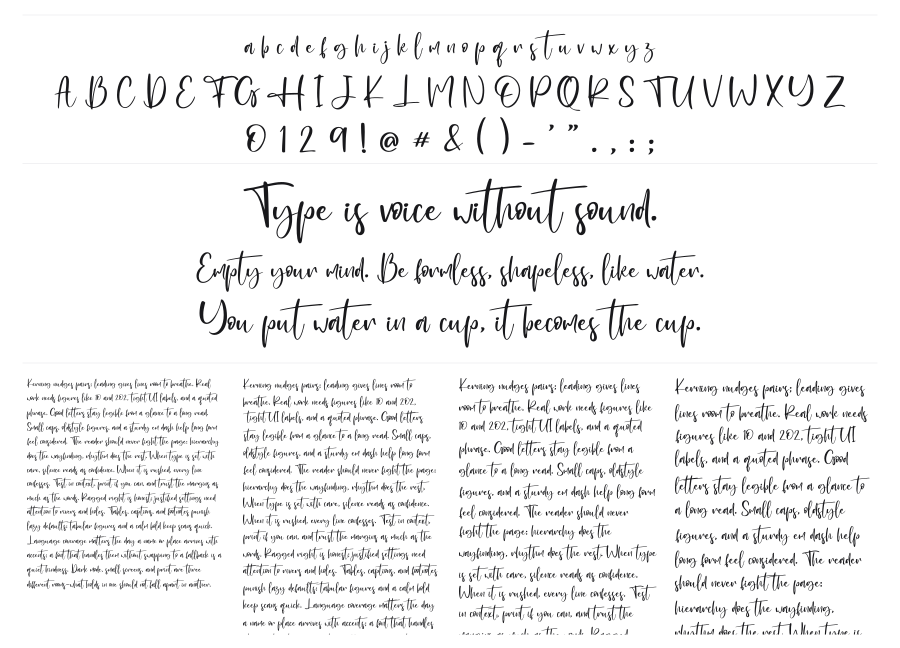 a b c d e f g h i j k l m n o p q r s t u v w x y z
A B C D E F G H I J K L M N O P Q R S T U V W X Y Z
0 1 2 9 ! @ # & ( ) - ' " . , : ;
Type is voice without sound.
Empty your mind. Be formless, shapeless, like water.
You put water in a cup, it becomes the cup.
Kerning nudges pairs; leading gives lines room to breathe. Real
work needs figures like 10 and 202, tight UI labels, and a quoted
phrase. Good letters stay legible from a glance to a long read.
Small caps, oldstyle figures, and a sturdy en dash help long form
feel considered. The reader should never fight the page: hierarchy
does the wayfinding, rhythm does the rest. When type is set with
care, silence reads as confidence. When it is rushed, every line
confesses. Test in context, print if you can, and trust the margins as
much as the words. Ragged right is honest; justified settings need
attention to rivers and holes. Tables, captions, and footnotes punish
lazy defaults; tabular figures and a calm bold keep scans quick.
Language coverage matters the day a name or place arrives with
accents; a font that handles them without swapping to a fallback is a
quiet kindness. Dark mode, small screens, and print are three
different rooms—what holds in one should not fall apart in another.
Kerning nudges pairs; leading gives lines room to
breathe. Real work needs figures like 10 and 202,
tight UI labels, and a quoted phrase. Good letters
stay legible from a glance to a long read. Small caps,
oldstyle figures, and a sturdy en dash help long form
feel considered. The reader should never fight the page:
hierarchy does the wayfinding, rhythm does the rest.
When type is set with care, silence reads as confidence.
When it is rushed, every line confesses. Test in context,
print if you can, and trust the margins as much as the
words. Ragged right is honest; justified settings need
attention to rivers and holes. Tables, captions, and footnotes
punish lazy defaults; tabular figures and a calm bold
keep scans quick. Language coverage matters the day
a name or place arrives with accents; a font that handles
Kerning nudges pairs; leading gives lines
room to breathe. Real work needs figures like
10 and 202, tight UI labels, and a quoted
phrase. Good letters stay legible from a
glance to a long read. Small caps, oldstyle
figures, and a sturdy en dash help long form
feel considered. The reader should never
fight the page: hierarchy does the
wayfinding, rhythm does the rest. When type
is set with care, silence reads as confidence.
When it is rushed, every line confesses. Test
in context, print if you can, and trust the
margins as much as the words. Ragged
Kerning nudges pairs; leading gives
lines room to breathe. Real work needs
figures like 10 and 202, tight UI
labels, and a quoted phrase. Good
letters stay legible from a glance to
a long read. Small caps, oldstyle
figures, and a sturdy en dash help
long form feel considered. The reader
should never fight the page:
hierarchy does the wayfinding,
rhythm does the rest. When type is